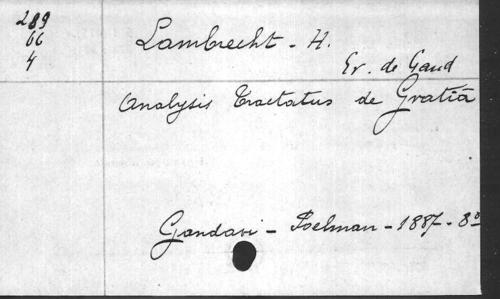 289
66
4
Lambrecht - H.
Ev. de Gand
Analysis Tractatus de Gratiâ
Gandavi - Poelman - 1887 - 8º